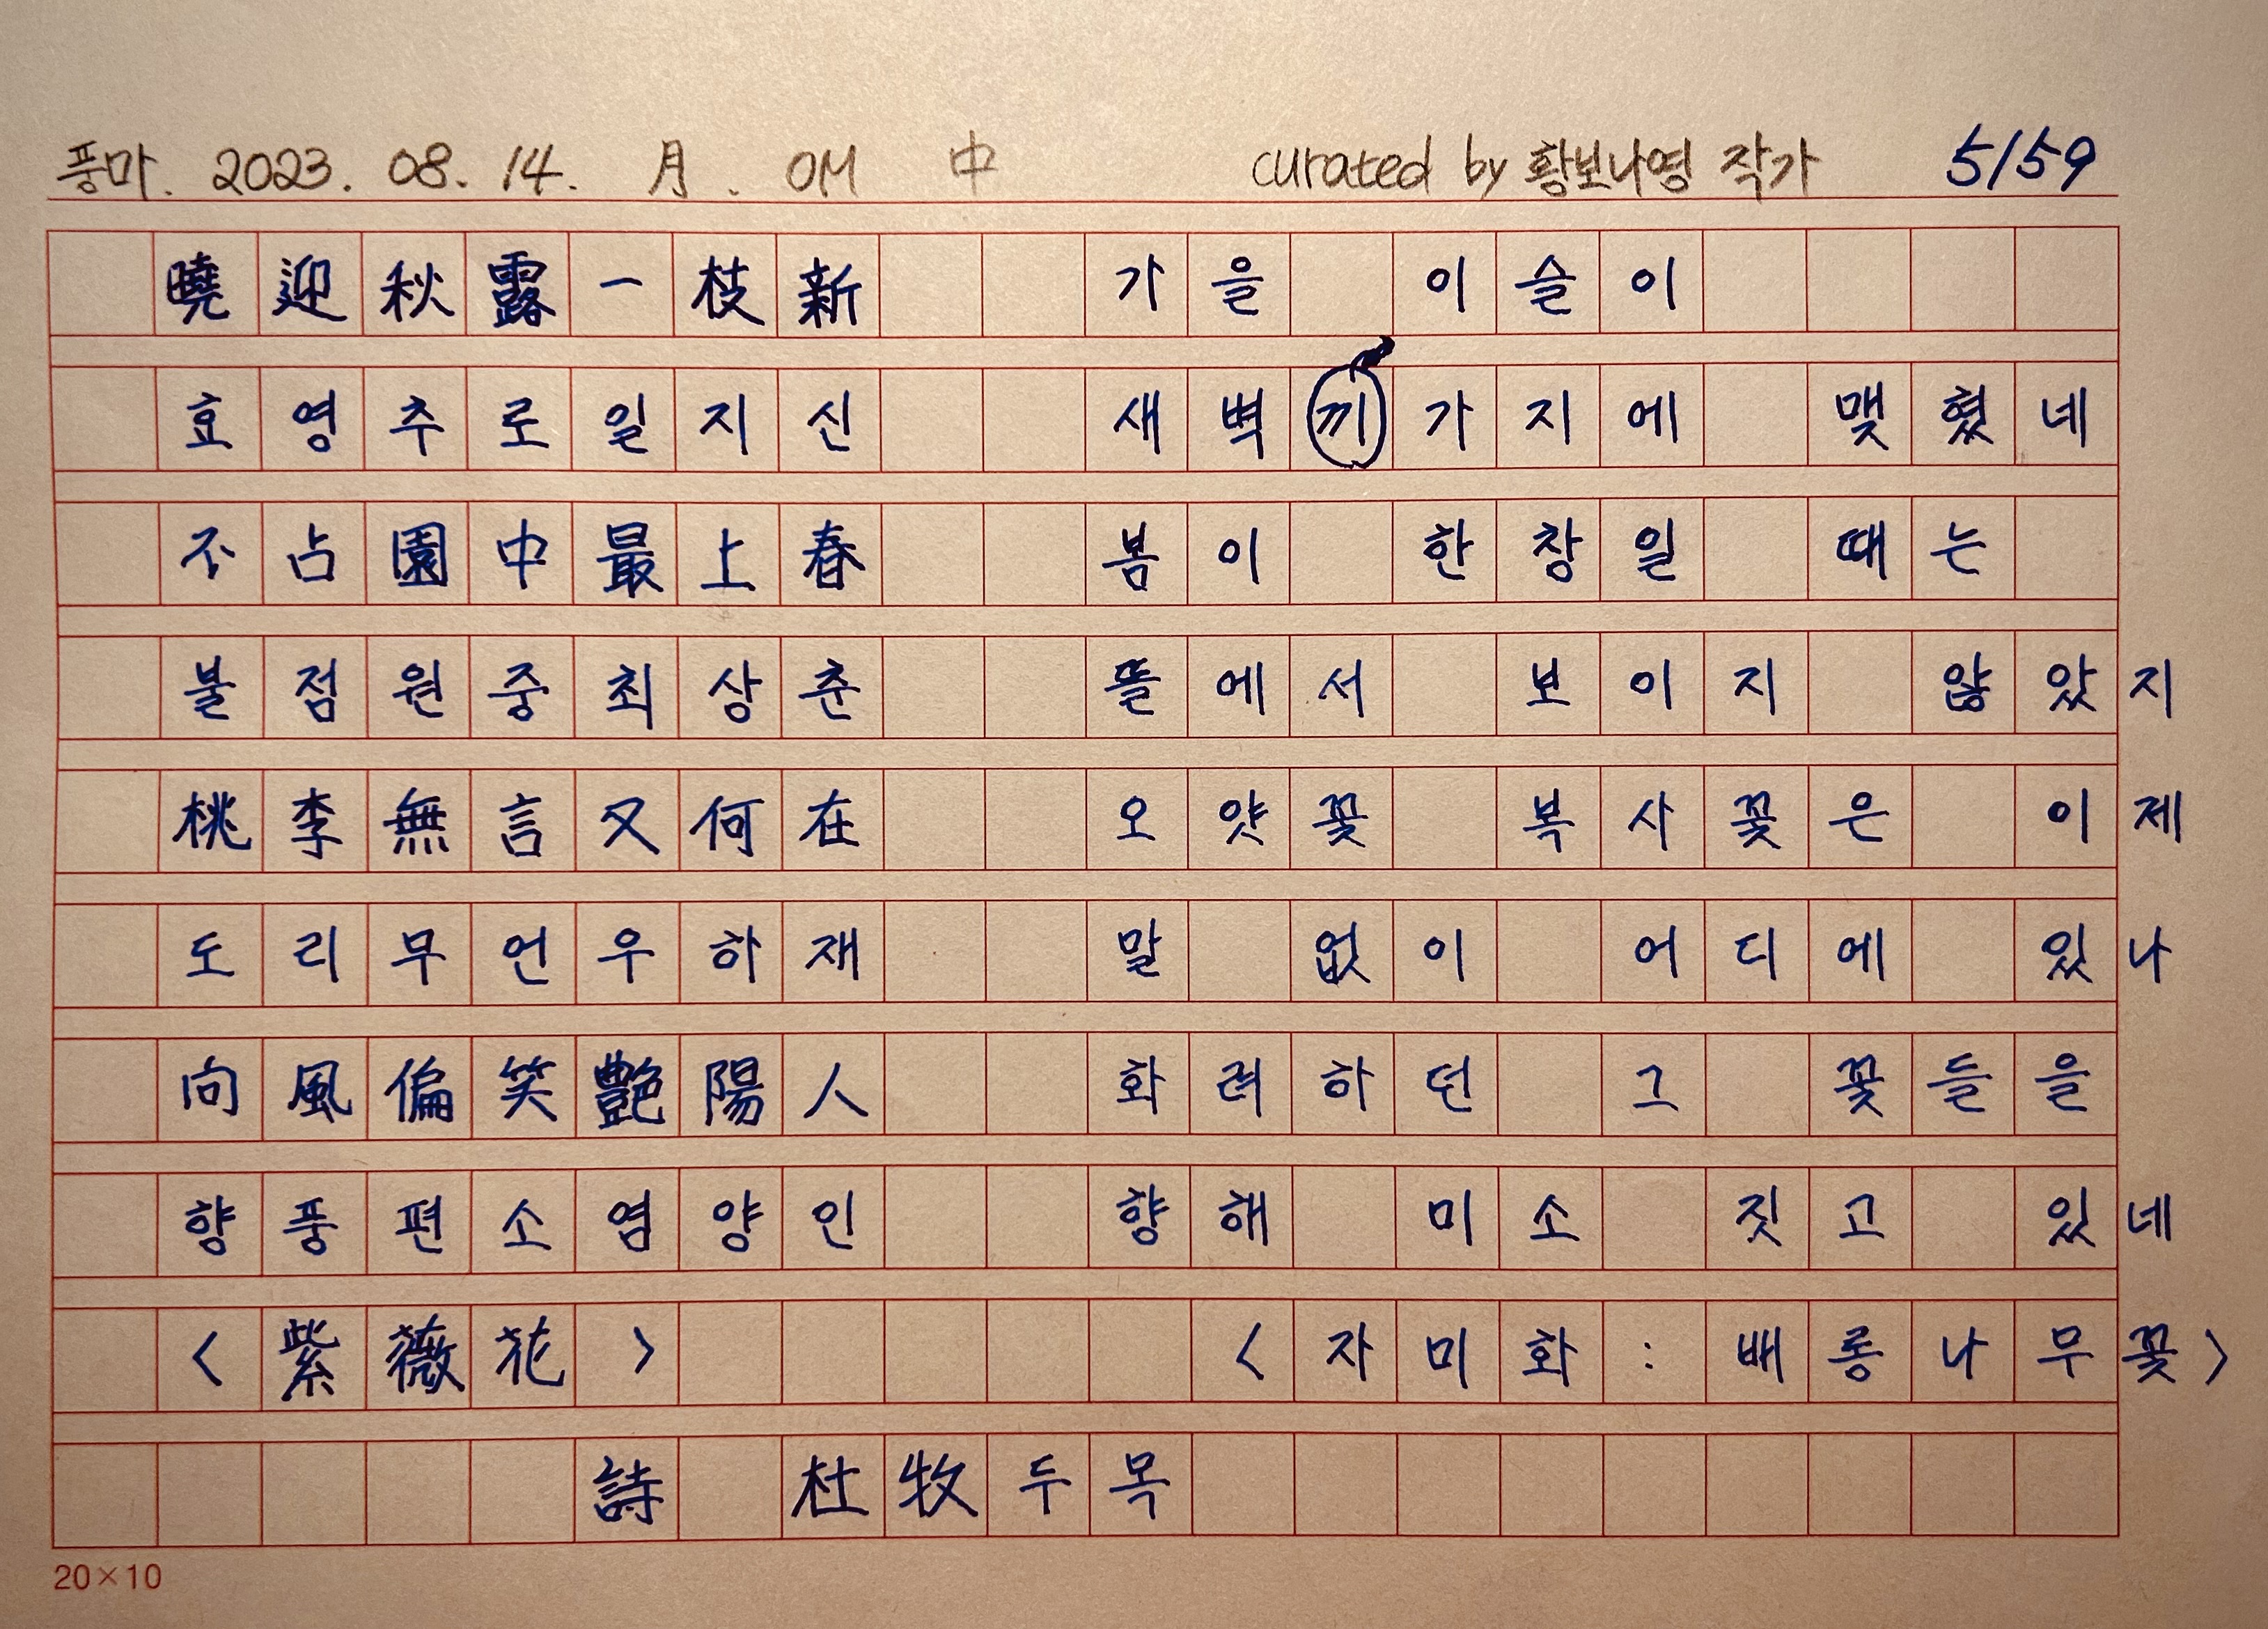 풍마. 2023. 08. 14. 月. OM 中 curated by 황보나영 작가 5/59
曉迎秋露一枝新 가을 이슬이
효영추로일지신 새벽끼가지에 맺혔네
不占園中最上春 봄이 한창일 때는
불점원중최상춘 뜰에서 보이지 않았지
桃李無言又何在 오얏꽃 복사꽃은 이제
도리무언우하재 말 없이 어디에 있나
向風偏笑艶陽人 화려하던 그 꽃들을
향풍편소염양인 향해 미소 짓고 있네
<紫薇花> <자미화: 배롱나무꽃>
詩 杜牧두목
20×10